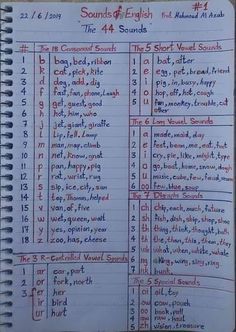 22/6/2019
Sounds of English
#1
Prof. Mahmoud Al Azab
"The 44 Sounds"
# The 18 Consonant Sounds
1 b bag, bed, ribbon
2 k cat, pick, kite
3 d dog, add, did
4 f fast, fan, phone, laugh
5 g get, guest, good
6 h hot, him, who
7 j jet, giant, giraffe
8 l lip, fell,
9 m man, map, climb
10 n net, know, gnat
11 p pan, happy, pig
12 r rat, wrist, rug
13 s sip, ice, city, sun
14 t top, Thomas, helped
15 v van, of, five
16 w wet, queen, wait
17 y yes, opinion, year
18 z zoo, has, cheese
The 3 R-Controlled Vowel Sounds
1 ar car, part
2 or fork, north
3 er her
ir bird
ur hurt
The 5 Short Vowel Sounds
1 a bat, after
2 e egg, pet, bread, friend
3 i pig, in, busy, happy
4 o mop, off, hot, cough
5 u fun, monkey, trouble, cut
other
The 6 Long Vowel Sounds
1 a made, maid, day
2 e beat, me, feet, eve
3 i cry, pie, like, might, type
4 o go, boat, home, snow, dough
5 u music, cube, few, fuse, use
6 oo few, blue, soup
The 7 Digraphs Sounds
1 ch chip, each, much, future
2 sh fish, dish, ship, shep, shoe
3 th thing, think, thought, both
4 th the, than, this, them, they
5 wh what, when, white, whale
6 ng king, wing, sing, ring
7 nk bunk,
The 5 Special Sounds
1 oi oil, toy
2 ow cow, pouch
3 oo book, put
4 aw raw, haul
5 zh vision, treasure